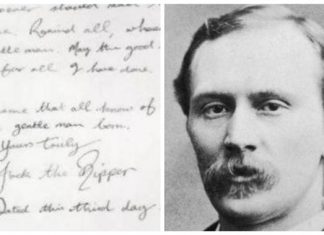 man
Remind all, who
gentle man. May the good
for all I have done.
name that all know of
gentle man born.
Yours truly
Jack the Ripper
Dated this third day